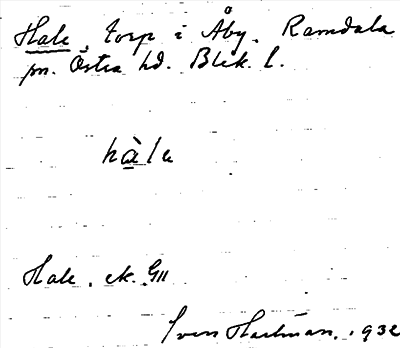 Hale, torp i Åby. Ramdala
sn. Östra hd. Blek. l.
hàle
Hale. ek. GII
Sven Hartman. 1932